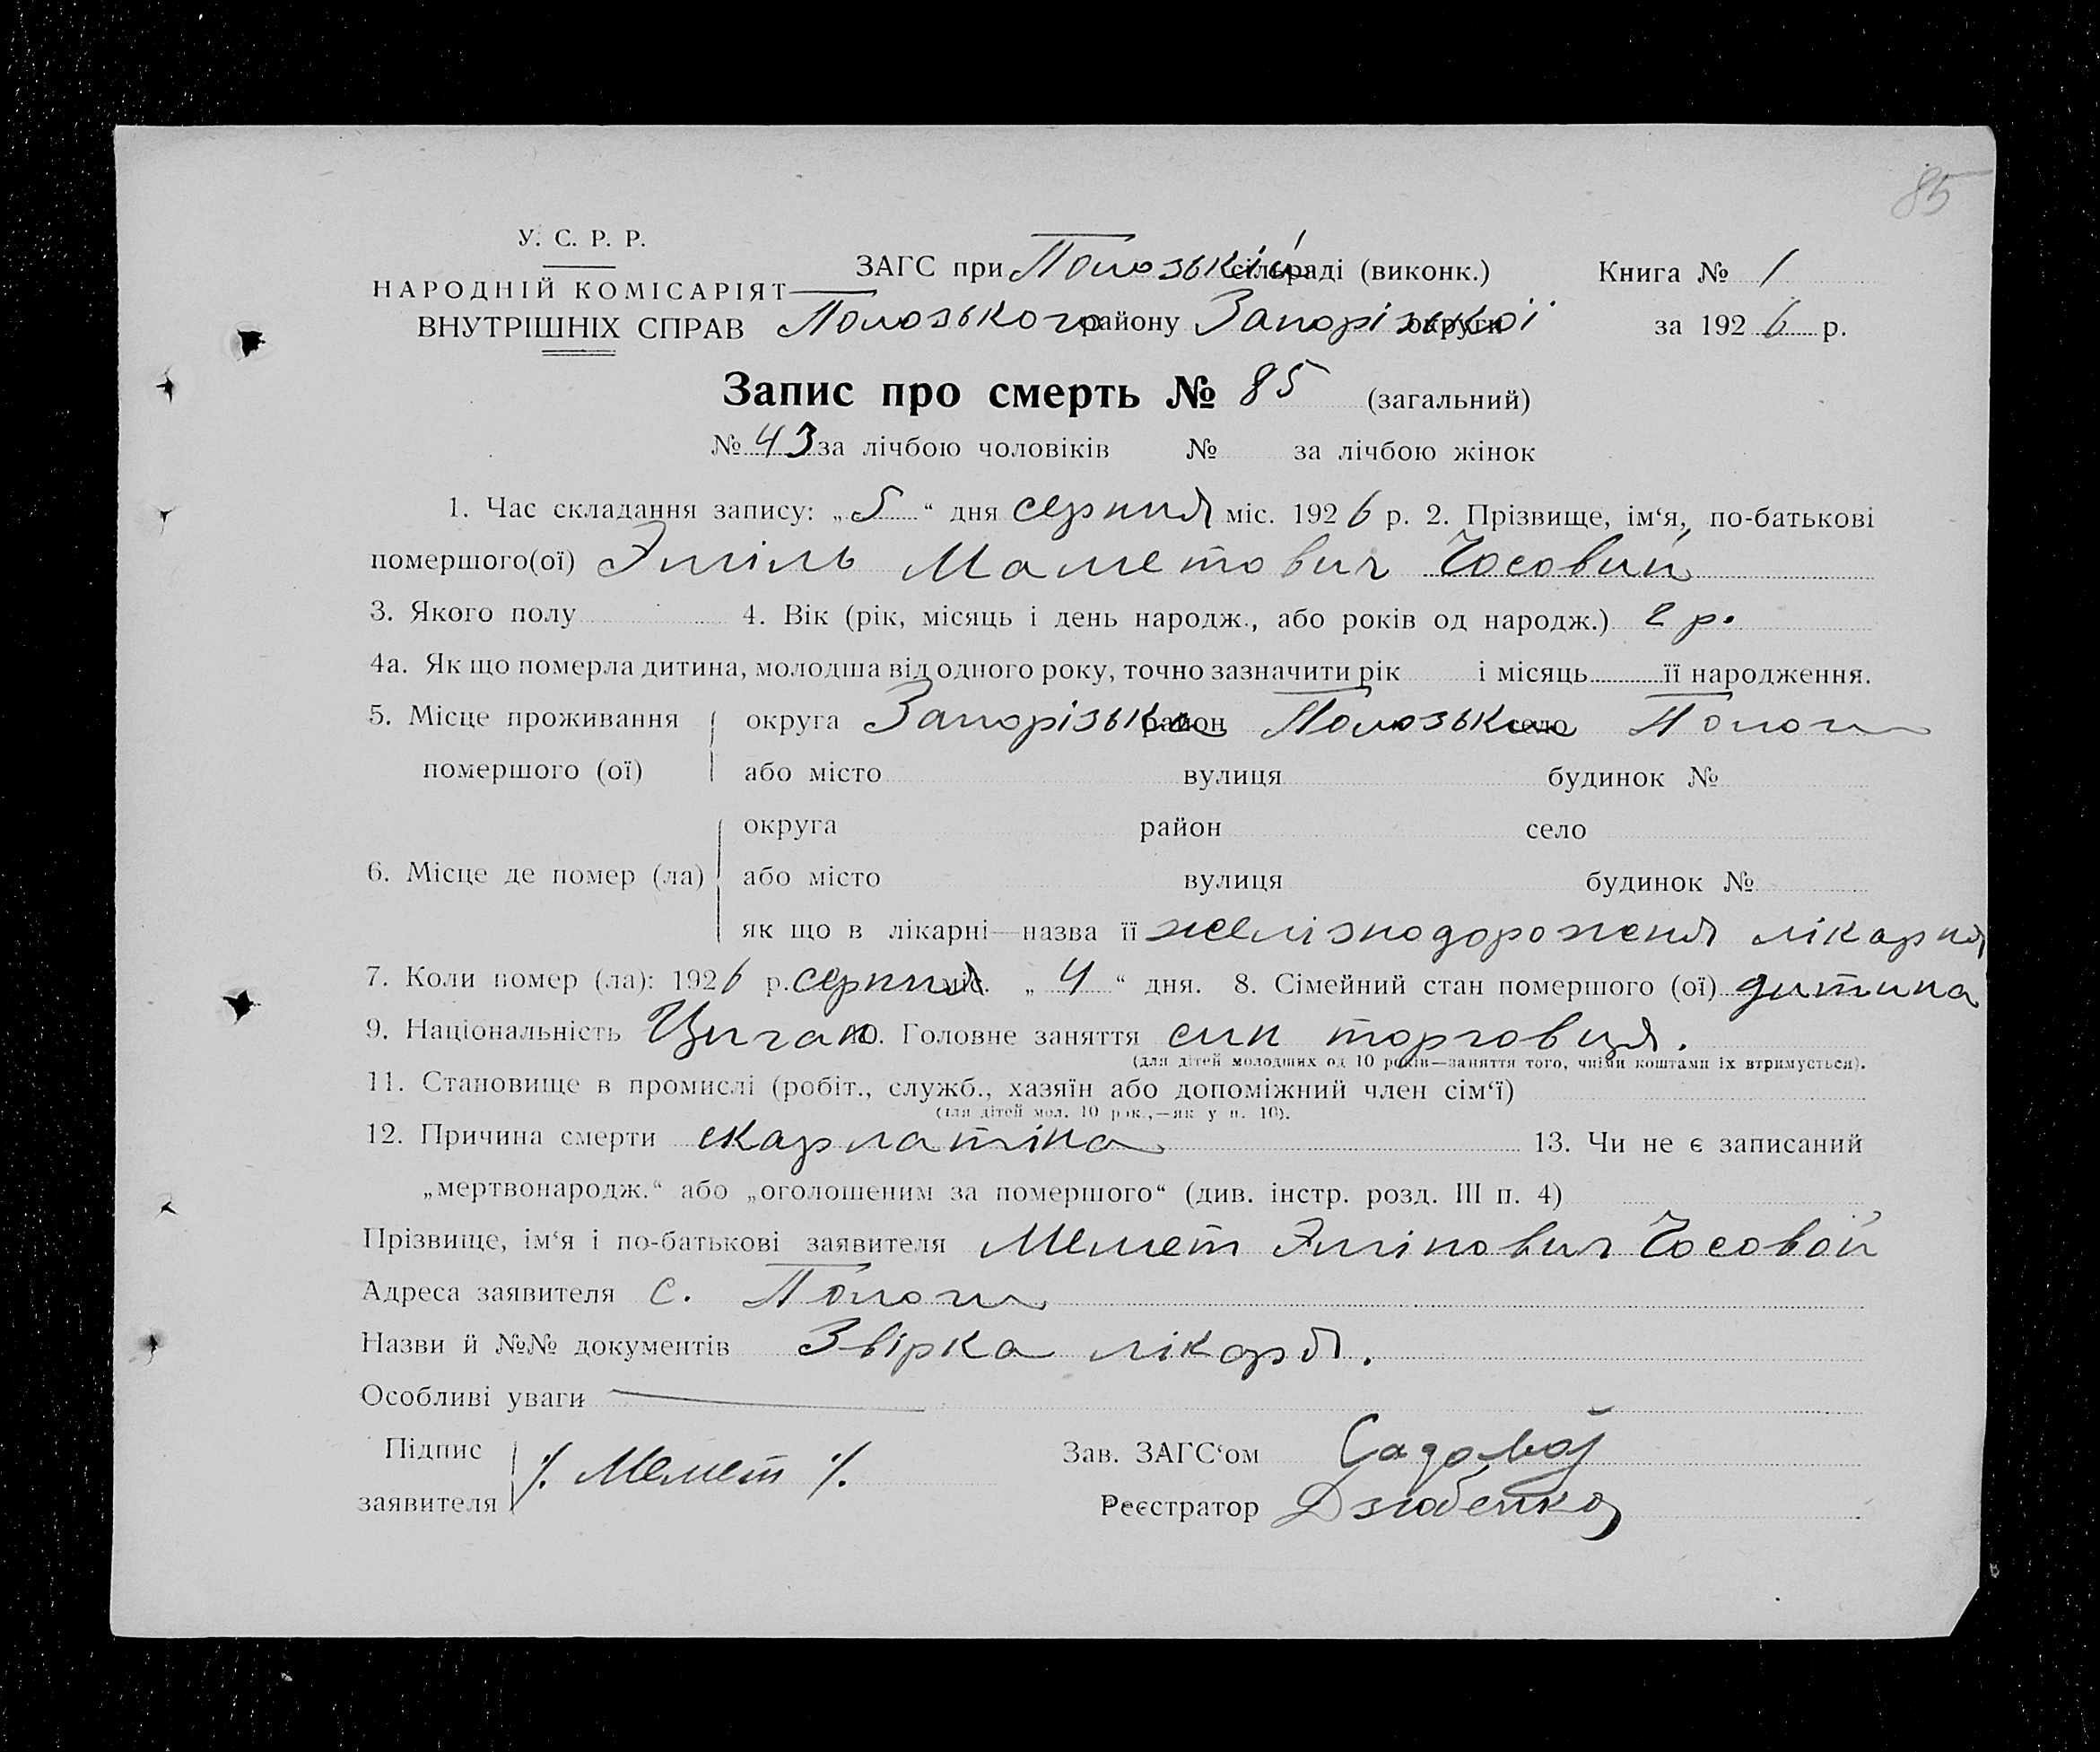 85
У. С. Р. Р.
НАРОДНІЙ КОМІСАРІЯТ
ВНУТРІШНІХ СПРАВ
ЗАГС при Пологській сільраді (виконк.) Книга № 1
Пологського району Запорізької округи за 1926 р.
Запис про смерть № 85 (загальний)
№ 43 за лічбою чоловіків № за лічбою жінок
1. Час складання запису: „5“ дня серпня міс. 1926 р. 2. Прізвище, ім‘я, по-батькові
помершого(ої) Эміль Маметович Чосовий
3. Якого полу 4. Вік (рік, місяць і день народж., або років од народж.) 2 р.
4а. Як що померла дитина, молодша від одного року, точно зазначити рік і місяць її народження.
5. Місце проживання помершого (ої) округа Запорізька район Пологськи село Пологи
або місто вулиця будинок №
6. Місце де помер (ла) округа район село
або місто вулиця будинок №
як що в лікарні—назва її желізнодорожня лікарня
7. Коли помер (ла): 1926 р. серпня міс. „4“ дня. 8. Сімейний стан помершого (ої) дитина
9. Національність Циган 10. Головне заняття син торговця.
(для дітей молодших од 10 років—заняття того, чиїми коштами їх втримується).
11. Становище в промислі (робіт., служб., хазяїн або допоміжний член сім‘ї)
(для дітей мол. 10 рок.,—як у п. 10).
12. Причина смерти скарлатіна 13. Чи не є записаний
„мертвонародж.“ або „оголошеним за помершого“ (див. інстр. розд. III п. 4)
Прізвище, ім‘я і по-батькові заявителя Мемет Эмінович Чосовой
Адреса заявителя с. Пологи
Назви й №№ документів Звірка лікаря.
Особливі уваги
Підпис заявителя ·/. Мемет ·/. Зав. ЗАГС‘ом Садовой
Реєстратор Дзюбенко